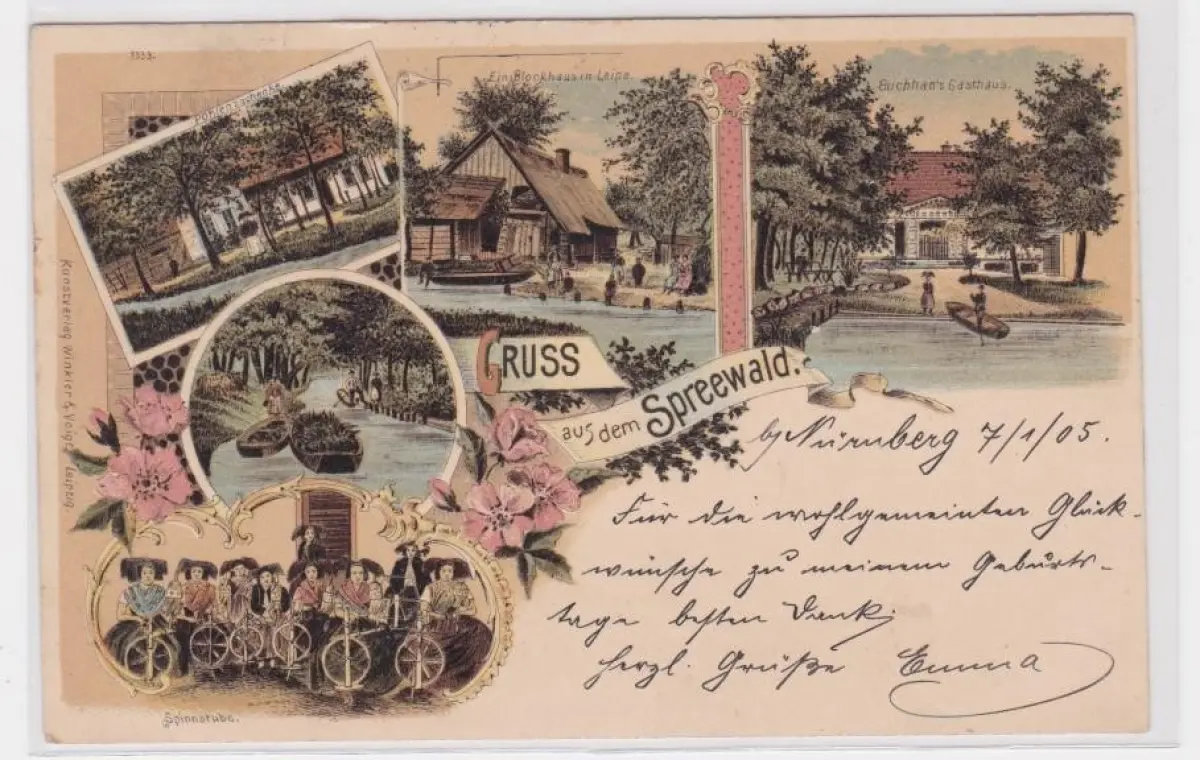 3338.
Ein Blockhaus in Leipe.
Buchhan's Gasthaus.
Kunstverlag Winkler & Voigt Leipzig
GRUSS
aus dem Spreewald.
Nürnberg 7/1/05.
Für die wohlgemeinten Glück-
wünsche zu meinem Geburts-
tage besten Dank,
herzl. Grüße Emma
Spinnstube.